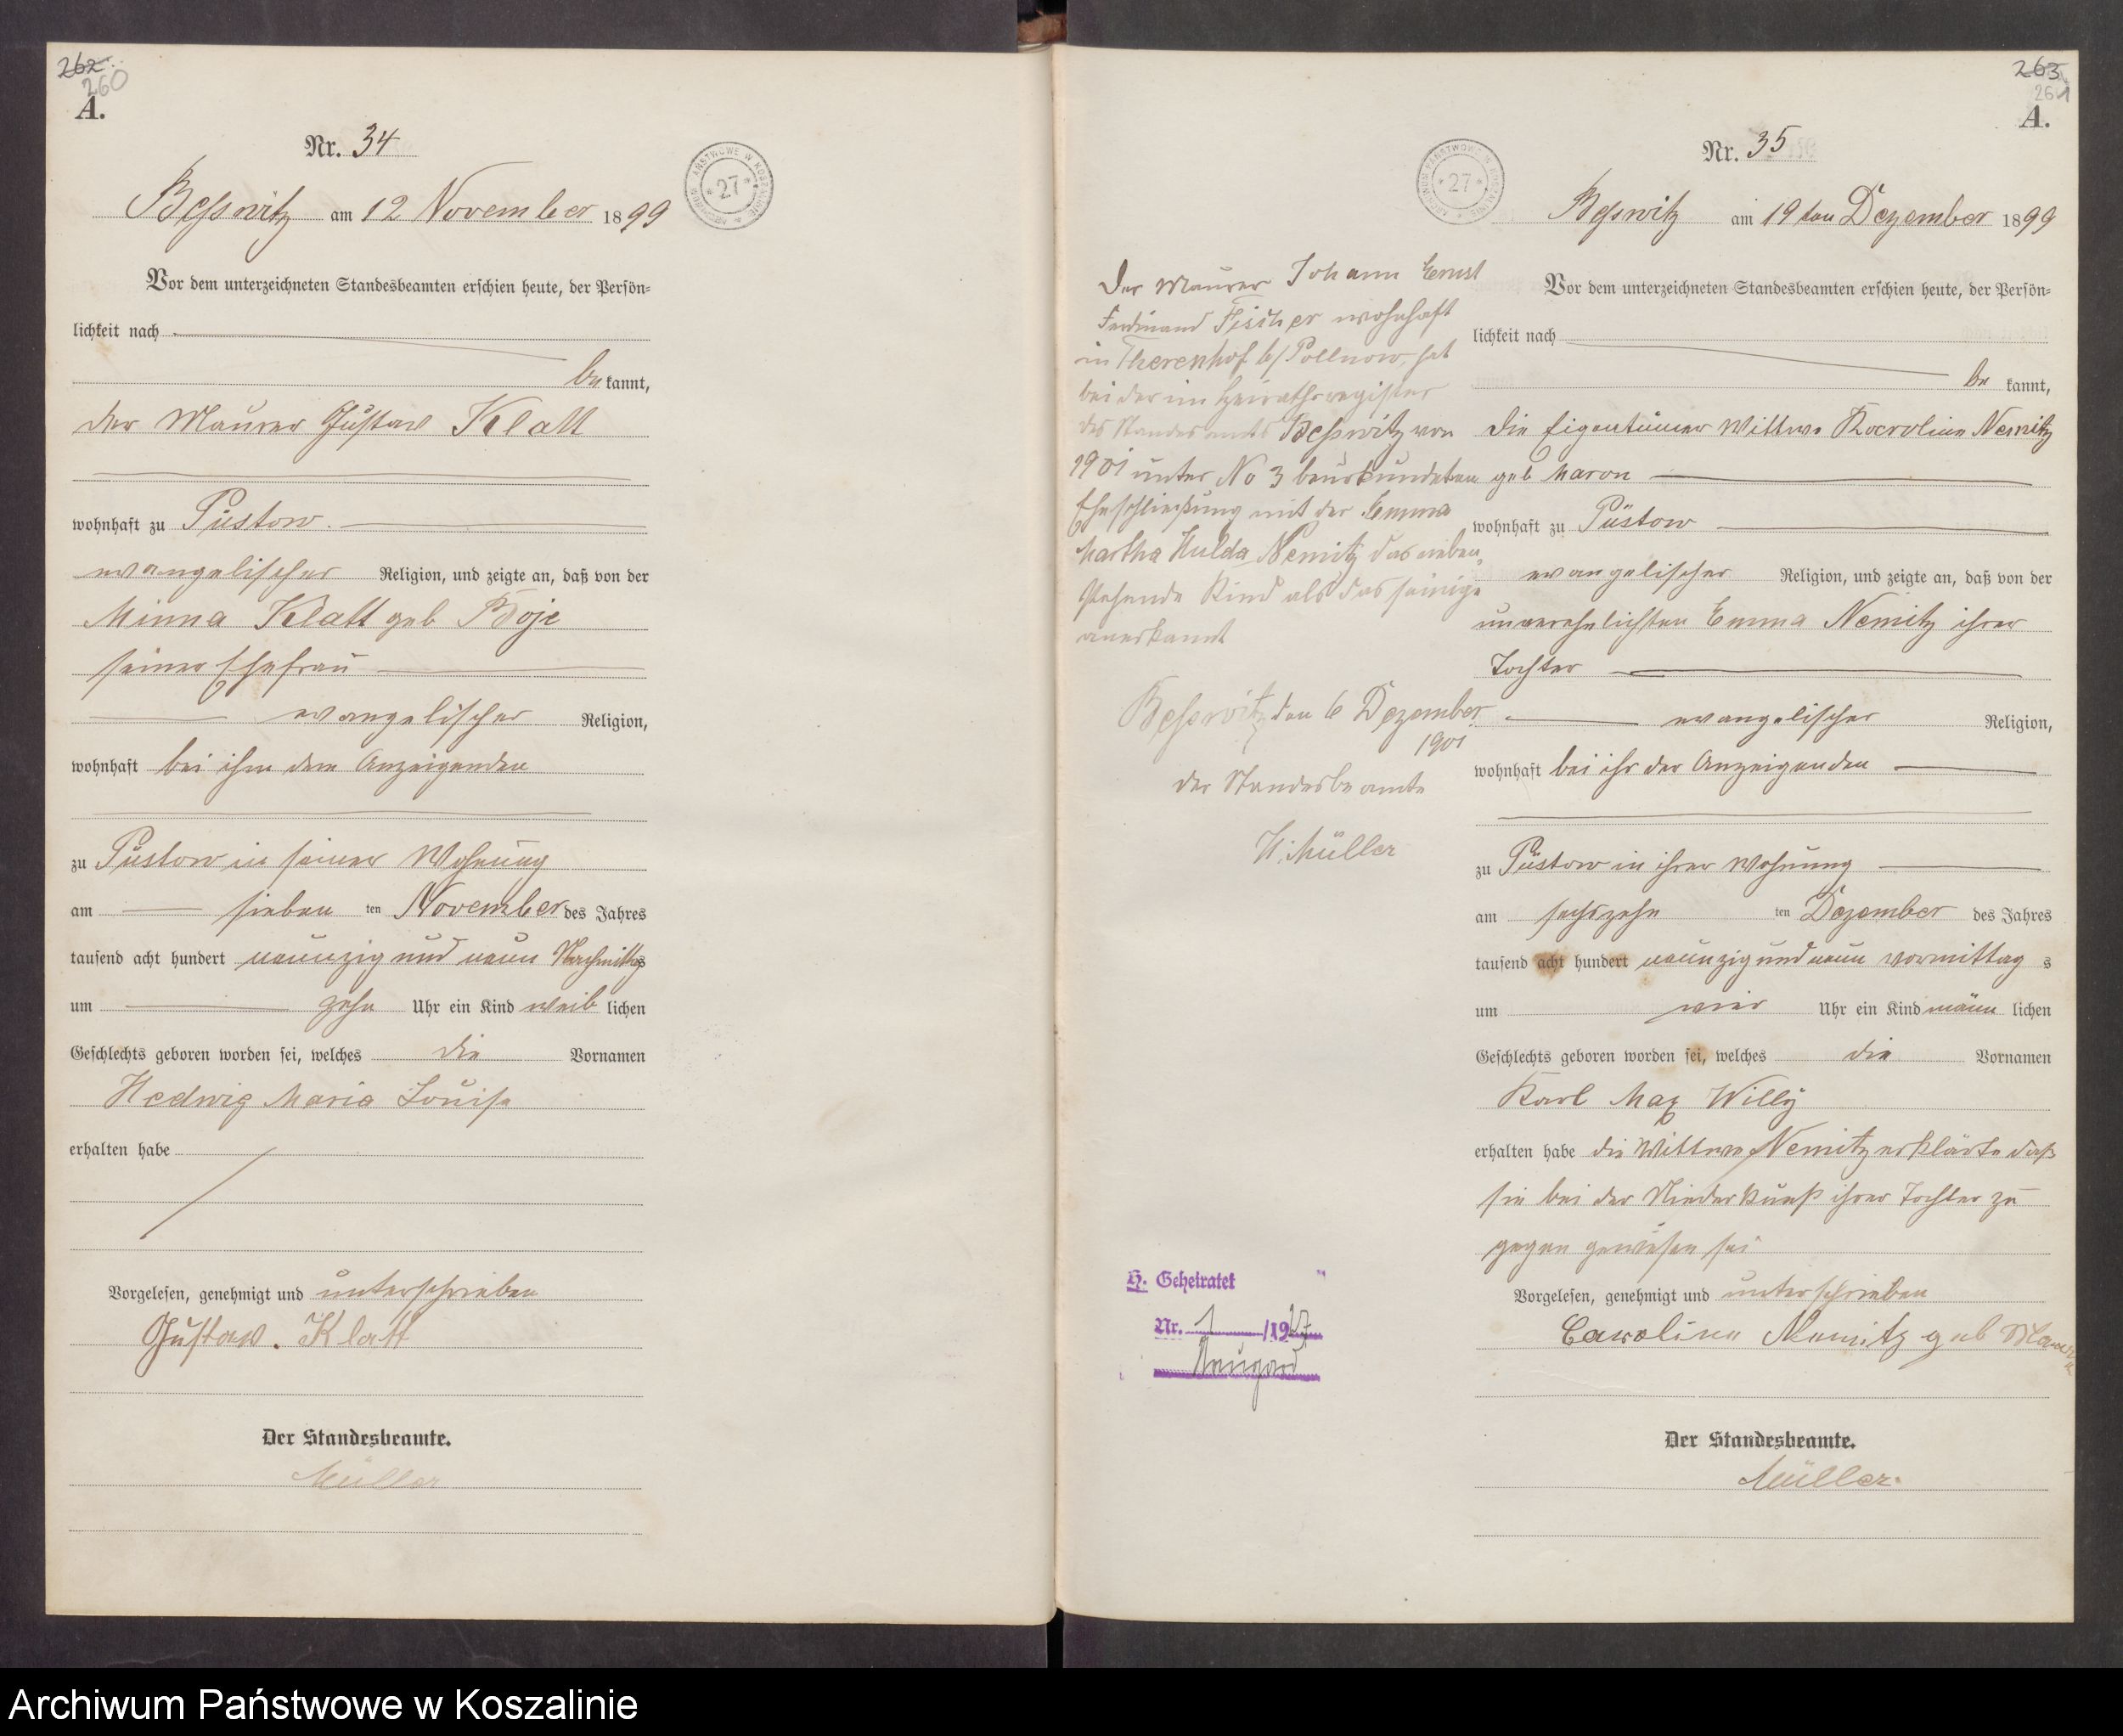 262.
260
A.
Nr. 34
Beßwitz am 12 November 1899
ARCHIWUM PAŃSTWOWE W KOSZALINIE * 27 *
Vor dem unterzeichneten Standesbeamten erschien heute, der Persön=
lichkeit nach
be kannt,
der Maurer Gustav Klatt
wohnhaft zu Püstow.
evangelischer Religion, und zeigte an, daß von der
Minna Klatt geb Boje
seiner Ehefrau
evangelischer Religion,
wohnhaft bei ihm dem Anzeigenden
zu Püstow in seiner Wohnung
am sieben ten November des Jahres
tausend acht hundert neunzig und neun Nachmittags
um zehn Uhr ein Kind weib lichen
Geschlechts geboren worden sei, welches die Vornamen
Hedwig Maria Louise
erhalten habe
Vorgelesen, genehmigt und unterschrieben
Gustav. Klatt
Der Standesbeamte.
Müller
263
261
A.
Nr. 35
ARCHIWUM PAŃSTWOWE W KOSZALINIE * 27 *
Beßwitz am 19 ten Dezember 1899
Der Maurer Johann Ernst
Ferdinand Fischer wohnhaft
in Therenhof b/Pollnow, hat
bei der im Heirathsregister
des Standesamts Beßwitz von
1901 unter No 3 beurkundeten
Eheschließung mit der Emma
Martha Hulda Nemitz das neben=
stehende Kind als das seinige
anerkannt
Beßwitz den 6 Dezember
1901
Der Standesbeamte
H. Müller
H. Geheiratet
Nr. 1 /1927
Naugard
Vor dem unterzeichneten Standesbeamten erschien heute, der Persön=
lichkeit nach
be kannt,
die Eigentümer Wittwe Karoline Nemitz
geb Maron
wohnhaft zu Püstow
evangelischer Religion, und zeigte an, daß von der
unverehelichten Emma Nemitz ihrer
Tochter
evangelischer Religion,
wohnhaft bei ihr der Anzeigenden
zu Püstow in ihrer Wohnung
am sechszehn ten Dezember des Jahres
tausend acht hundert neunzig und neun vormittag s
um vier Uhr ein Kind männ lichen
Geschlechts geboren worden sei, welches die Vornamen
Karl Max Willy
erhalten habe die Wittwe Nemitz erklärte daß
sie bei der Niederkunft ihrer Tochter zu
gegen gewesen sei
Vorgelesen, genehmigt und unterschrieben
Caroline Nemitz geb Maron
Der Standesbeamte.
Müller.
Archiwum Państwowe w Koszalinie